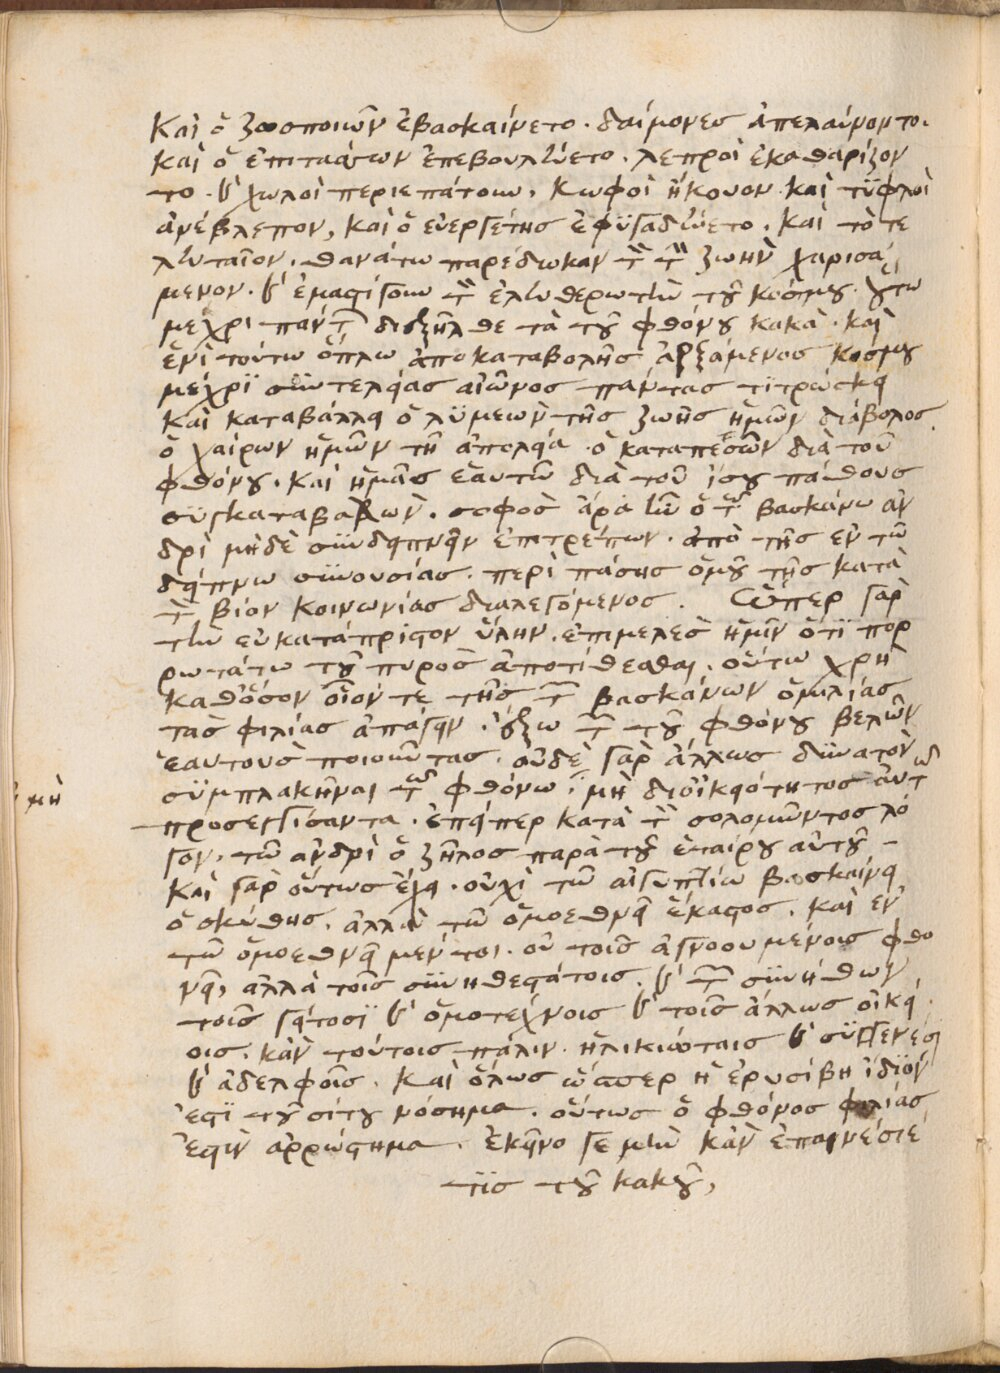 Καὶ ὁ ζωοποιῶν ἐβασκαίνετο. δαίμονες ἀπελαύνοντο.
καὶ ὁ ἐπιτάσσων ἐπεβουλεύετο. λεπροὶ ἐκαθαρίζον
το. καὶ χωλοὶ περιεπάτουν. κωφοὶ ἤκουον. καὶ τυφλοὶ
ἀνέβλεπον, καὶ ὁ εὐεργέτης ἐφυγαδεύετο. καὶ τὸ τε
λευταῖον. θανάτω παρέδωκαν τὸν τὴν ζωὴν χαρισά
μενον. καὶ ἐμαστίγουν τὸν ἐλευθερωτὴν τοῦ κόσμου. οὕτω
μεχρι παντων διεξῆλθε τὰ τοῦ φθόνου κακὰ. καὶ
ἑνὶ τούτω ὅπλω ἀπο καταβολῆς ἀρξάμενος κόσμου
μέχρϊ συντελείας αἰῶνος πάντας τϊτρώσκει
καὶ καταβάλλει ὁ λϋμεὼν τῆς ζωῆς ἡμῶν διάβολος.
ὁ χαίρων ἡμῶν τῆ ἀπολεία. ὁ καταπεσὼν διὰ τοῦ
φθόνου. καὶ ἡμᾶς ἑαυτῶ διὰ τοῦ ἴσου πάθους
σϋγκαταβαλὼν. σοφὸς ἄρα ἦν ὁ τῶ βασκάνω ἀν
δρὶ μηδὲ συνδειπνεῖν ἐπιτρέπων. ἀπὸ τῆς ἐν τῶ
δείπνω συνουσίας. περὶ πάσης ὁμοῦ τῆς κατὰ
τὸν βίον κοινωνίας διαλεγόμενος. Ὥσπερ γὰρ
τὴν εὐκατάπρηστον ὕλην. ἐπιμελὲς ἡμῖν ὅτϊ πορ
ρωτάτω τοῦ πυρὸς ἀποτίθεσθαι. οὕτω χρὴ
καθόσον οἷόν τε τῆς τῶν βασκάνων ὁμιλίας
τὰς φιλίας ἀπάγειν. ἔξω τῶν τοῦ φθόνου βελῶν
ἑαυτοὺς ποιοῦντας. οὐδὲ γὰρ ἄλλως δϋνατὸν
σϋμπλακῆναι τῶ φθόνω. μὴ διοἰκειότητος αὐτῶ
μὴ
προσεγγίσαντα. ἐπείπερ κατὰ τὸν σολομῶντος λό
γον. τῶ ἀνδρὶ ὁ ζῆλος παρὰ τοῦ ἑταίρου αὐτοῦ –
Καὶ γὰρ οὕτως ἔχει. οὐχὶ τῶ αἰγυπτίω βασκαίνει
ὁ σκύθης. ἀλλὰ τῶ ὁμοεθνεῖ ἕκαστος. καὶ ἐν
τῶ ὁμοεθνεῖ μέντοι. οὐ τοῖς ἀγνοουμένοις φθο
νεῖ, ἀλλὰ τοῖς συνηθεστάτοις. καὶ τῶν συνήθων
τοῖς γείτοσϊ καὶ ὁμοτέχνοις καὶ τοῖς ἄλλως οἰκεί
οις. κἀν τούτοις πάλιν. ἡλικιώταις καὶ συγγενέσι
καὶ ἀδελφοῖς. καὶ ὅλως ὥσπερ ἡ ἐρυσίβη ἴδϊόν
ἐστϊ τοῦ σίτου νόσημα. οὕτως ὁ φθόνος φιλίας
ἐστὶν ἀρρώστημα. ἐκεῖνο γε μὴν κἂν ἐπαινέσιέ
τϊς τοῦ κακοῦ,